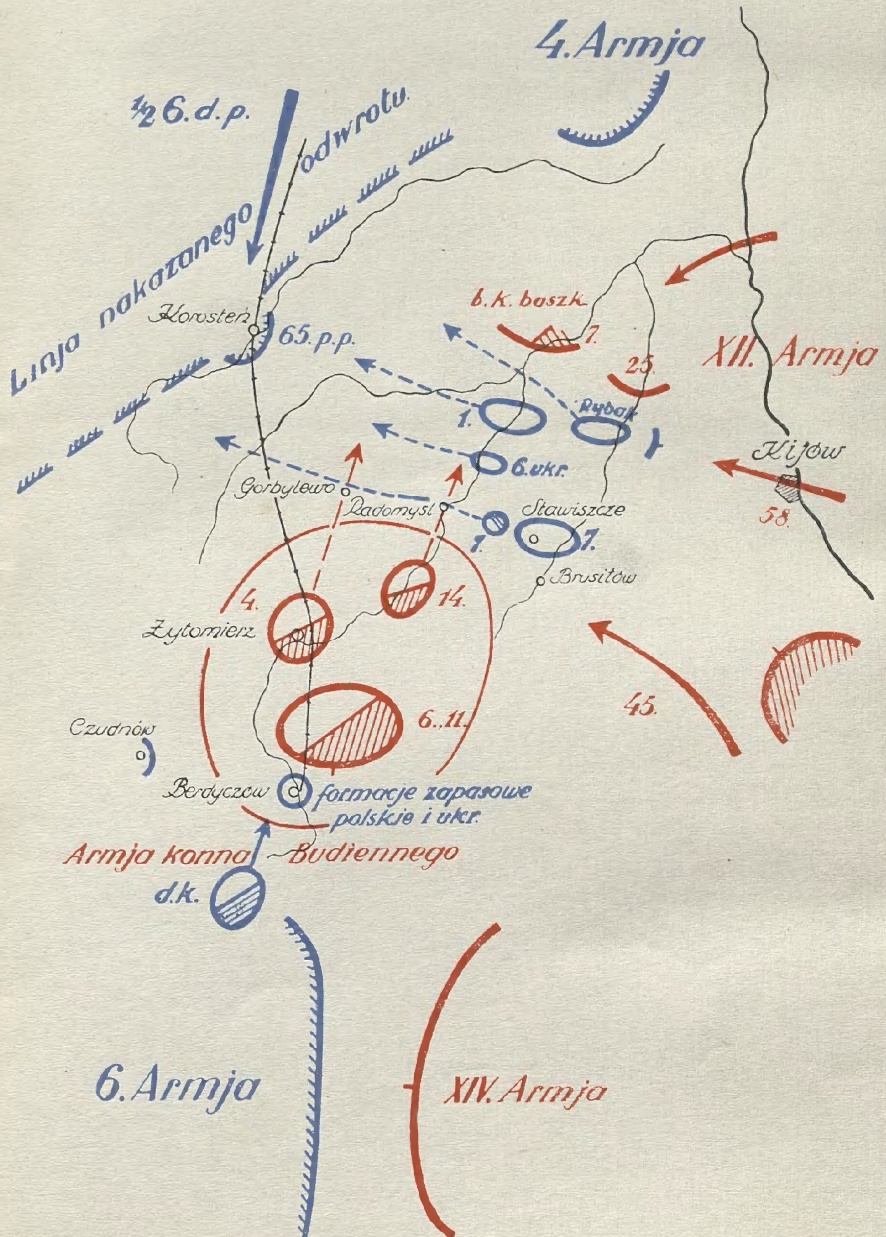 4. Armja
½ 6. d. p.
Linja nakazanego odwrotu.
b. k. baszk.
7.
Korosteń
65. p. p.
XII. Armja
25.
1.
Rybak
Kijów
6. ukr.
58.
Gorbylewo
Radomysl
Stawiszcze
1.
7.
Brusiłów
4.
14.
Żytomierz
45.
6., 11.
Czudnów
Berdyczów
formacje zapasowe
polskie i ukr.
Armja konna Budiennego
d. k.
6. Armja
XIV. Armja